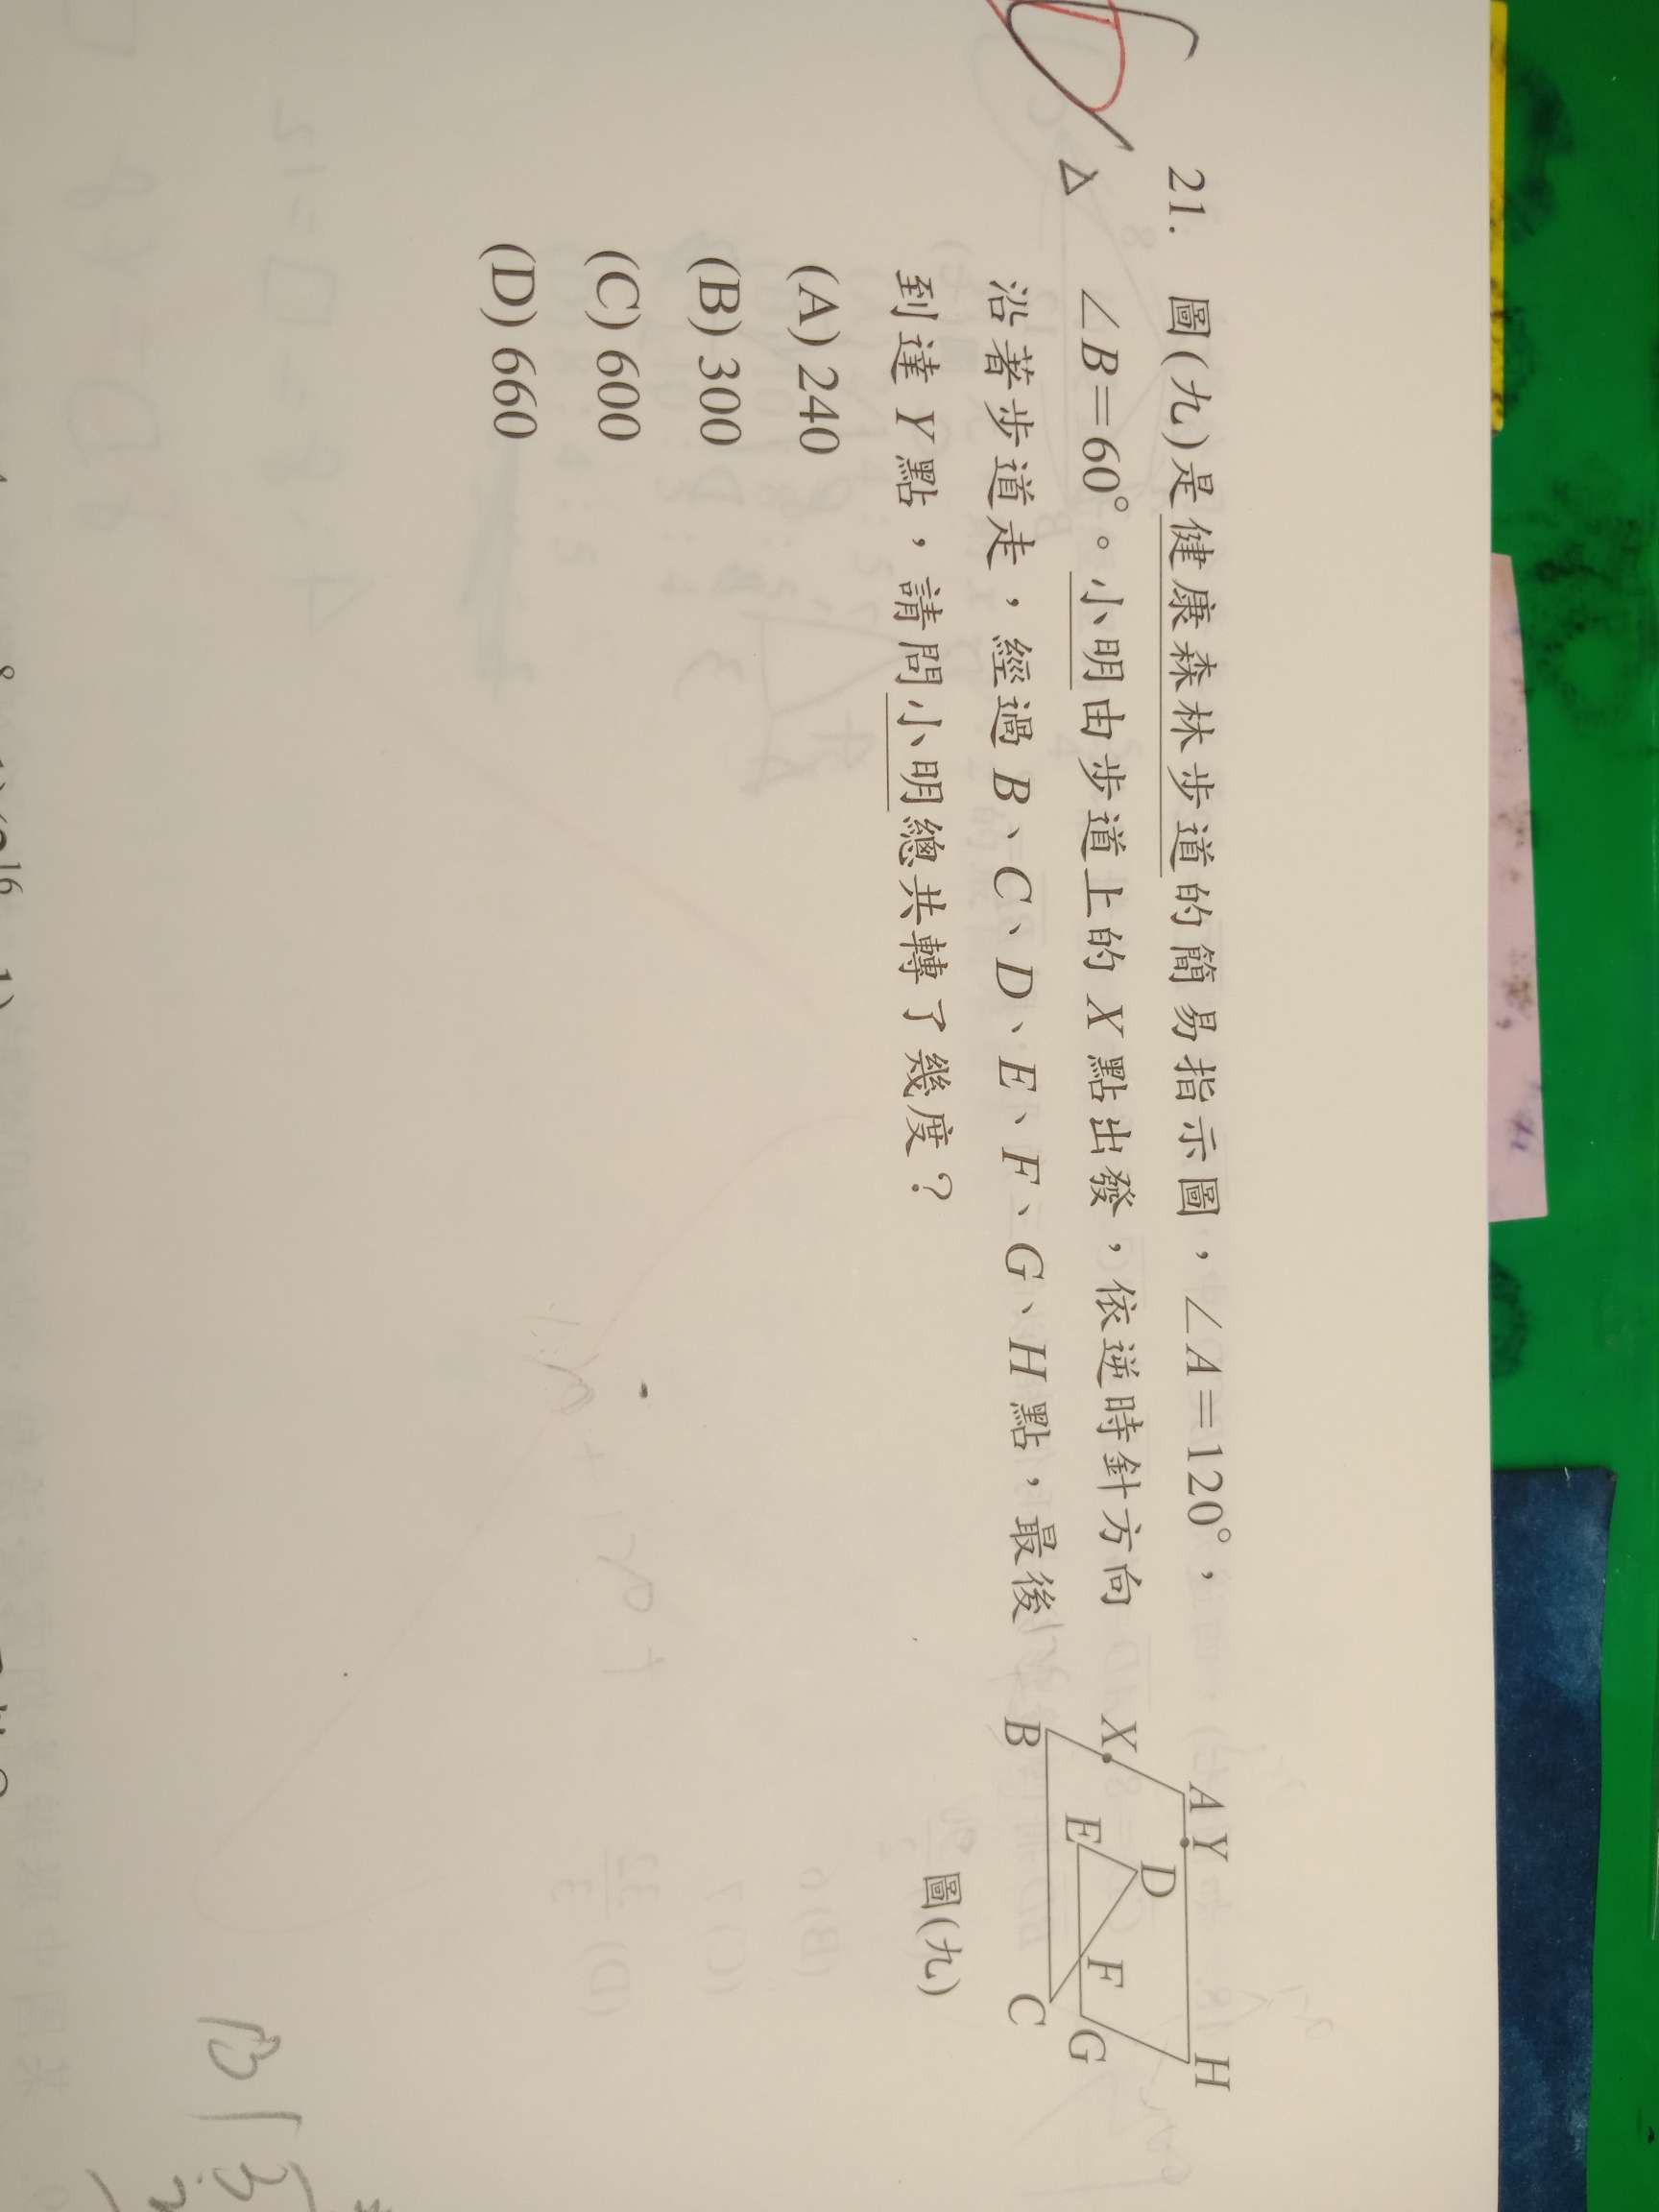 21. 圖(九)是健康森林步道的簡易指示圖，∠A=120°，
∠B=60°。小明由步道上的 X 點出發，依逆時針方向
沿著步道走，經過 B、C、D、E、F、G、H 點，最後
到達 Y 點，請問小明總共轉了幾度？
(A) 240
(B) 300
(C) 600
(D) 660
A Y H
D
X
E F G
B C
圖(九)